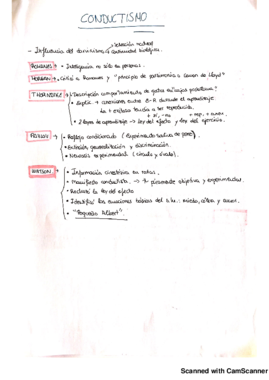 CONDUCTISMO
selección natural
- Influencia del darwinismo continuidad biológica.
ROMANES • Inteligencia no sólo las personas.
MORGAN • Criticó a Romanes y "principio de parsimonia o canon de Lloyd"
THORNDIKE • "Descripción comportamiento de gatos en cajas problema"
• Explic. → conexiones entre E-R durante el aprendizaje
La + exitosa tendía a ser reproducida.
+ st, - ins + rep. + durad.
• 2 leyes de aprendizaje → ley del efecto y ley del ejercicio.
PAVLOV • Reflejo condicionado (Experimento saliva del perro).
• Extinción, generalización y discriminación.
• Neurosis experimental (círculo y óvalo).
WATSON • Información cinestésica en ratas.
• Manifiesto conductista → ψ puramente objetiva y experimental.
• Rechazó la ley del efecto
• Identificó las emociones básicas del s.h.: miedo, cólera y amor.
• "Pequeño Albert"
Scanned with CamScanner